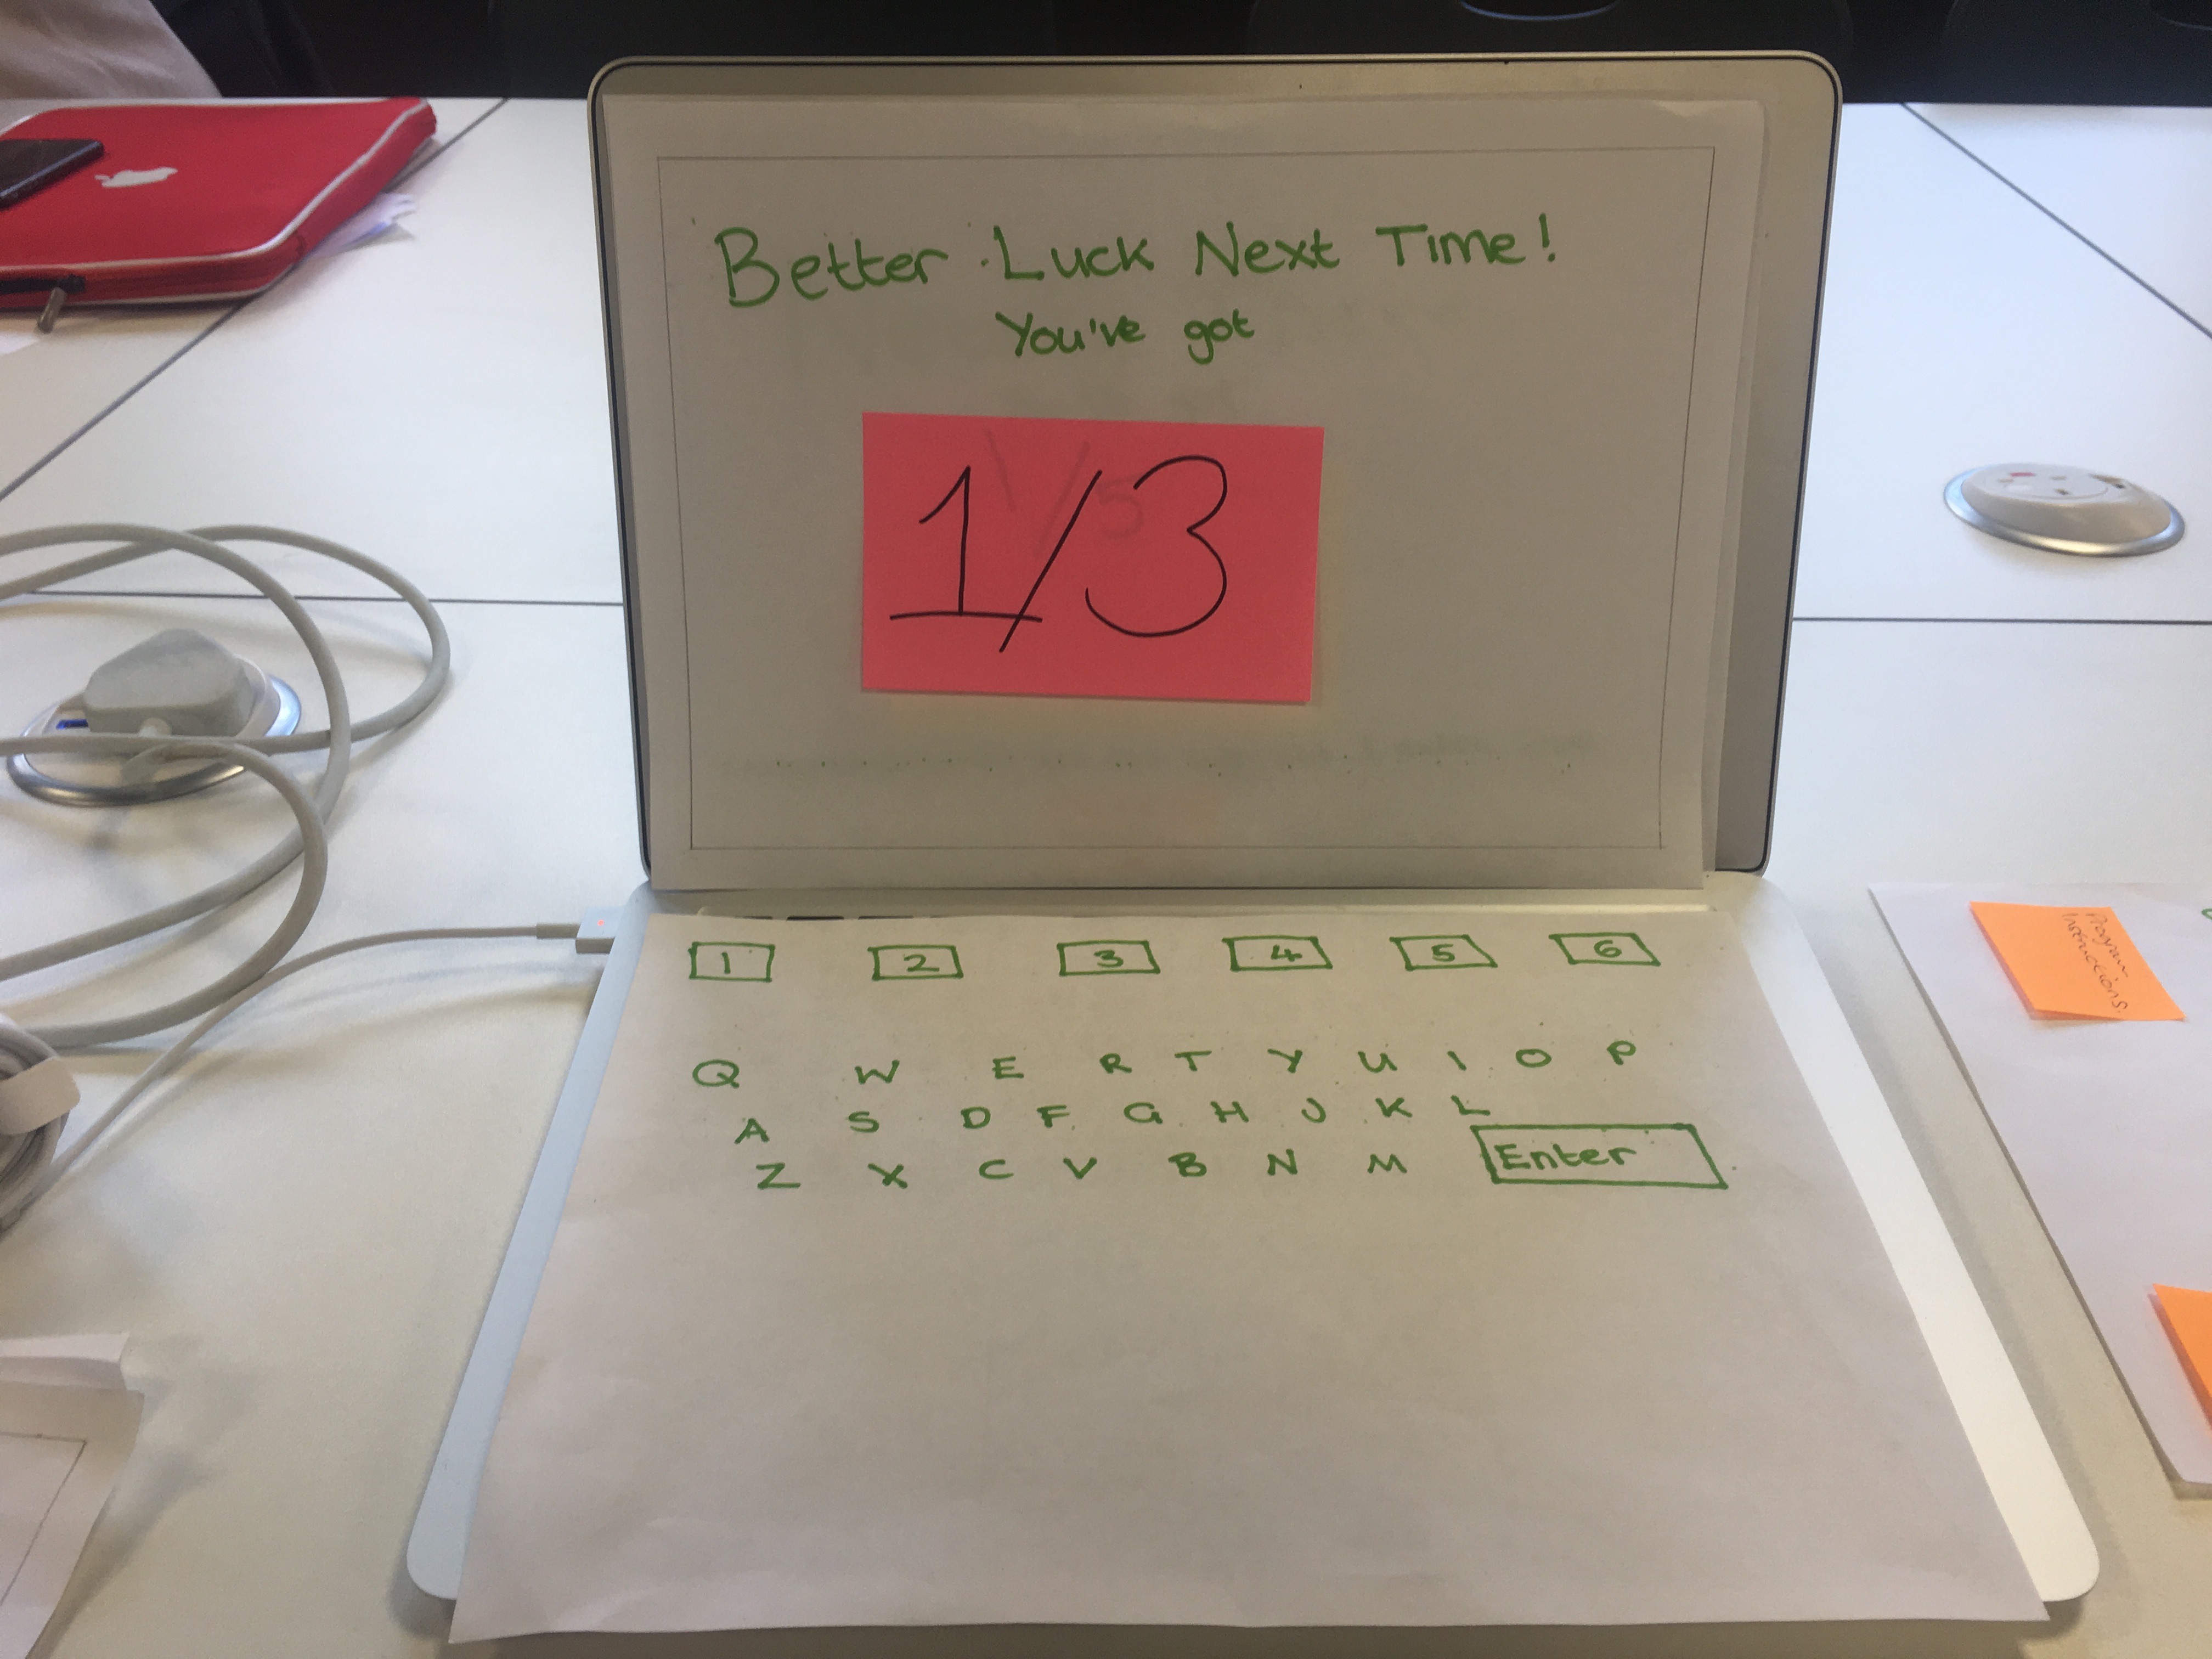 Better Luck Next Time!
You've got
1/3
1 2 3 4 5 6
Q W E R T Y U I O P
A S D F G H J K L
Z X C V B N M Enter
Program
Instructions.